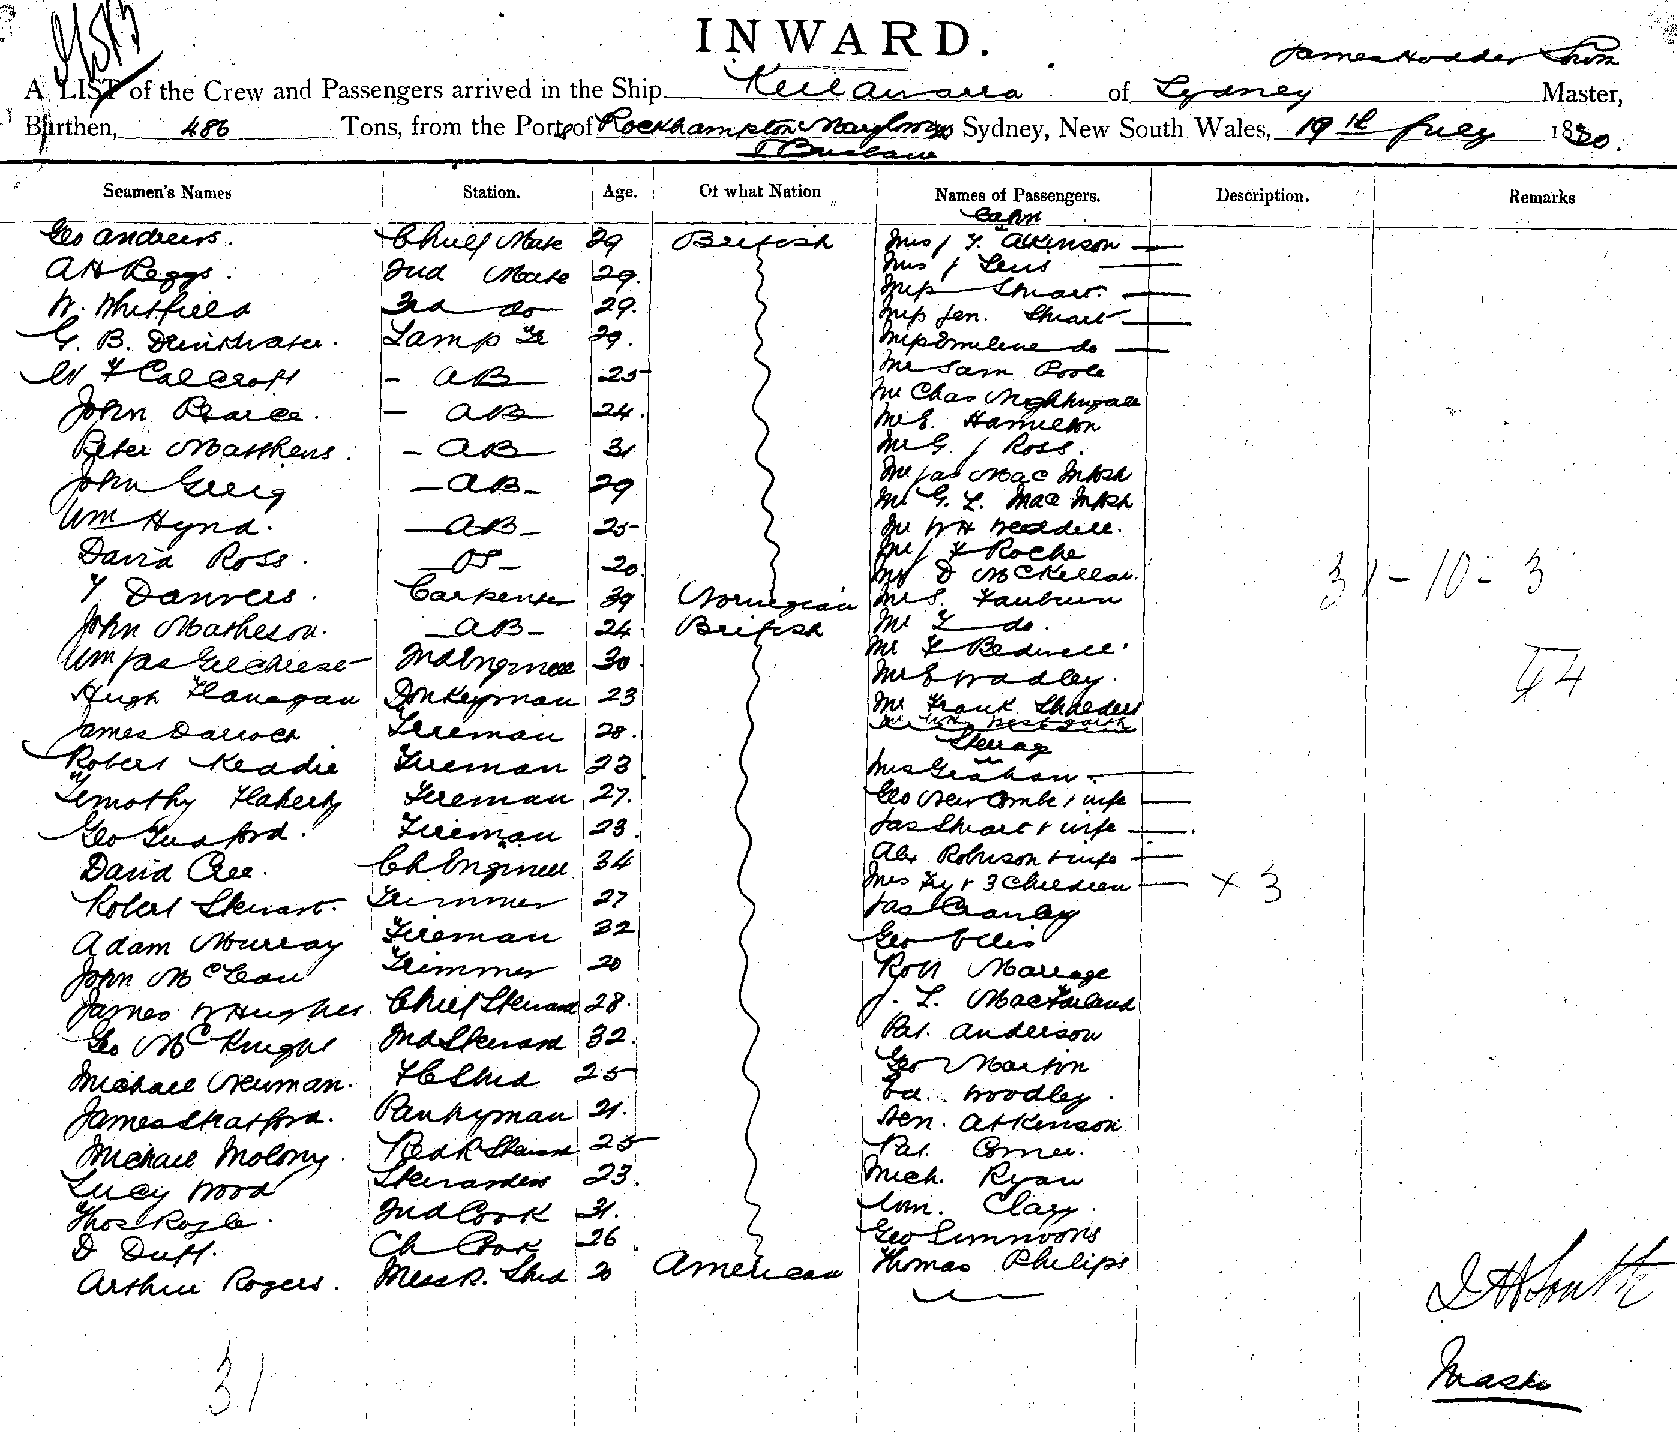 INWARD.
James Hodder South
A LIST of the Crew and Passengers arrived in the Ship Keilawarra of Sydney Master,
Burthen, 486 Tons, from the Port of Rockhampton Sydney, New South Wales, 19th July 1890.
& Brisbane
Seamen's Names Station. Age. Of what Nation Names of Passengers. Description. Remarks
Cabin
Geo Andrews. Chief Mate 29 British Mrs J. F. Atkinson
A H Peggs. 2nd Mate 29. Mrs J Lens
W. Whitfield 3rd do 29. Miss Stuart
G. B. Drinkwater. Lamp Tr 29. Miss Jen. Stuart
Miss Emilene do
W F Calcroft - AB 25 Mr Sam Poole
John Pearce. - AB 24. Mr Chas Nightingale
Mr E. Hamilton
Peter Matthews. - AB 31 Mr G. J Ross.
John Greig - AB - 29 Mr Jas MacIntosh
Mr G. L. MacIntosh
Wm Hynd. - AB - 25 Mr W H Weddell.
David Ross. - OS - 20. Mr J F Roche
Mr D McKellar. 31-10-3
T Danvers. Carpenter 39 Norwegian Mr S. Fauburn
John Matheson. - AB - 24 British Mr F do.
Wm Jas Gilchrist 2nd Engineer 30 Mr F Bedwell.
Mr E Wadley. 44
Hugh Flanagan Donkeyman 23 Mr Frank Shielders
James Darroch Fireman 28.
Steerage
Robert Keddie Fireman 23 Mrs Graham
Timothy Flaherty Fireman 27. Geo Newcombe & wife
Geo Gusford. Fireman 23. Jas Stuart & wife
David Cree. Ch Engineer 34 Alex Robinson & wife
Mrs Fry & 3 Children × 3
Robert Stewart. Trimmer 27 Jas Cranley
Adam Murray Fireman 32 Geo Ellis
John McLean Trimmer 20 Robt Marrage
James W Hughes Chief Steward 28. J. L. MacFarland
Geo McKnight 2nd Steward 32. Pat. Anderson
Geo Martin
Michael Newman. F C Stwd 25 Ed. Woodley.
James Stratford. Pantryman 21. Hen. Atkinson
Michael Molony. Bed R Steward 25 Pat. Corner.
Lucy Wood Stewardess 23. Mich. Ryan
Thos Royle. 2nd Cook 31. Wm. Clapp.
D Duff. Ch Cook 26 Geo Simmons
Arthur Rogers. Mess R. Stwd 20 American Thomas Philips
J H South
31
Master